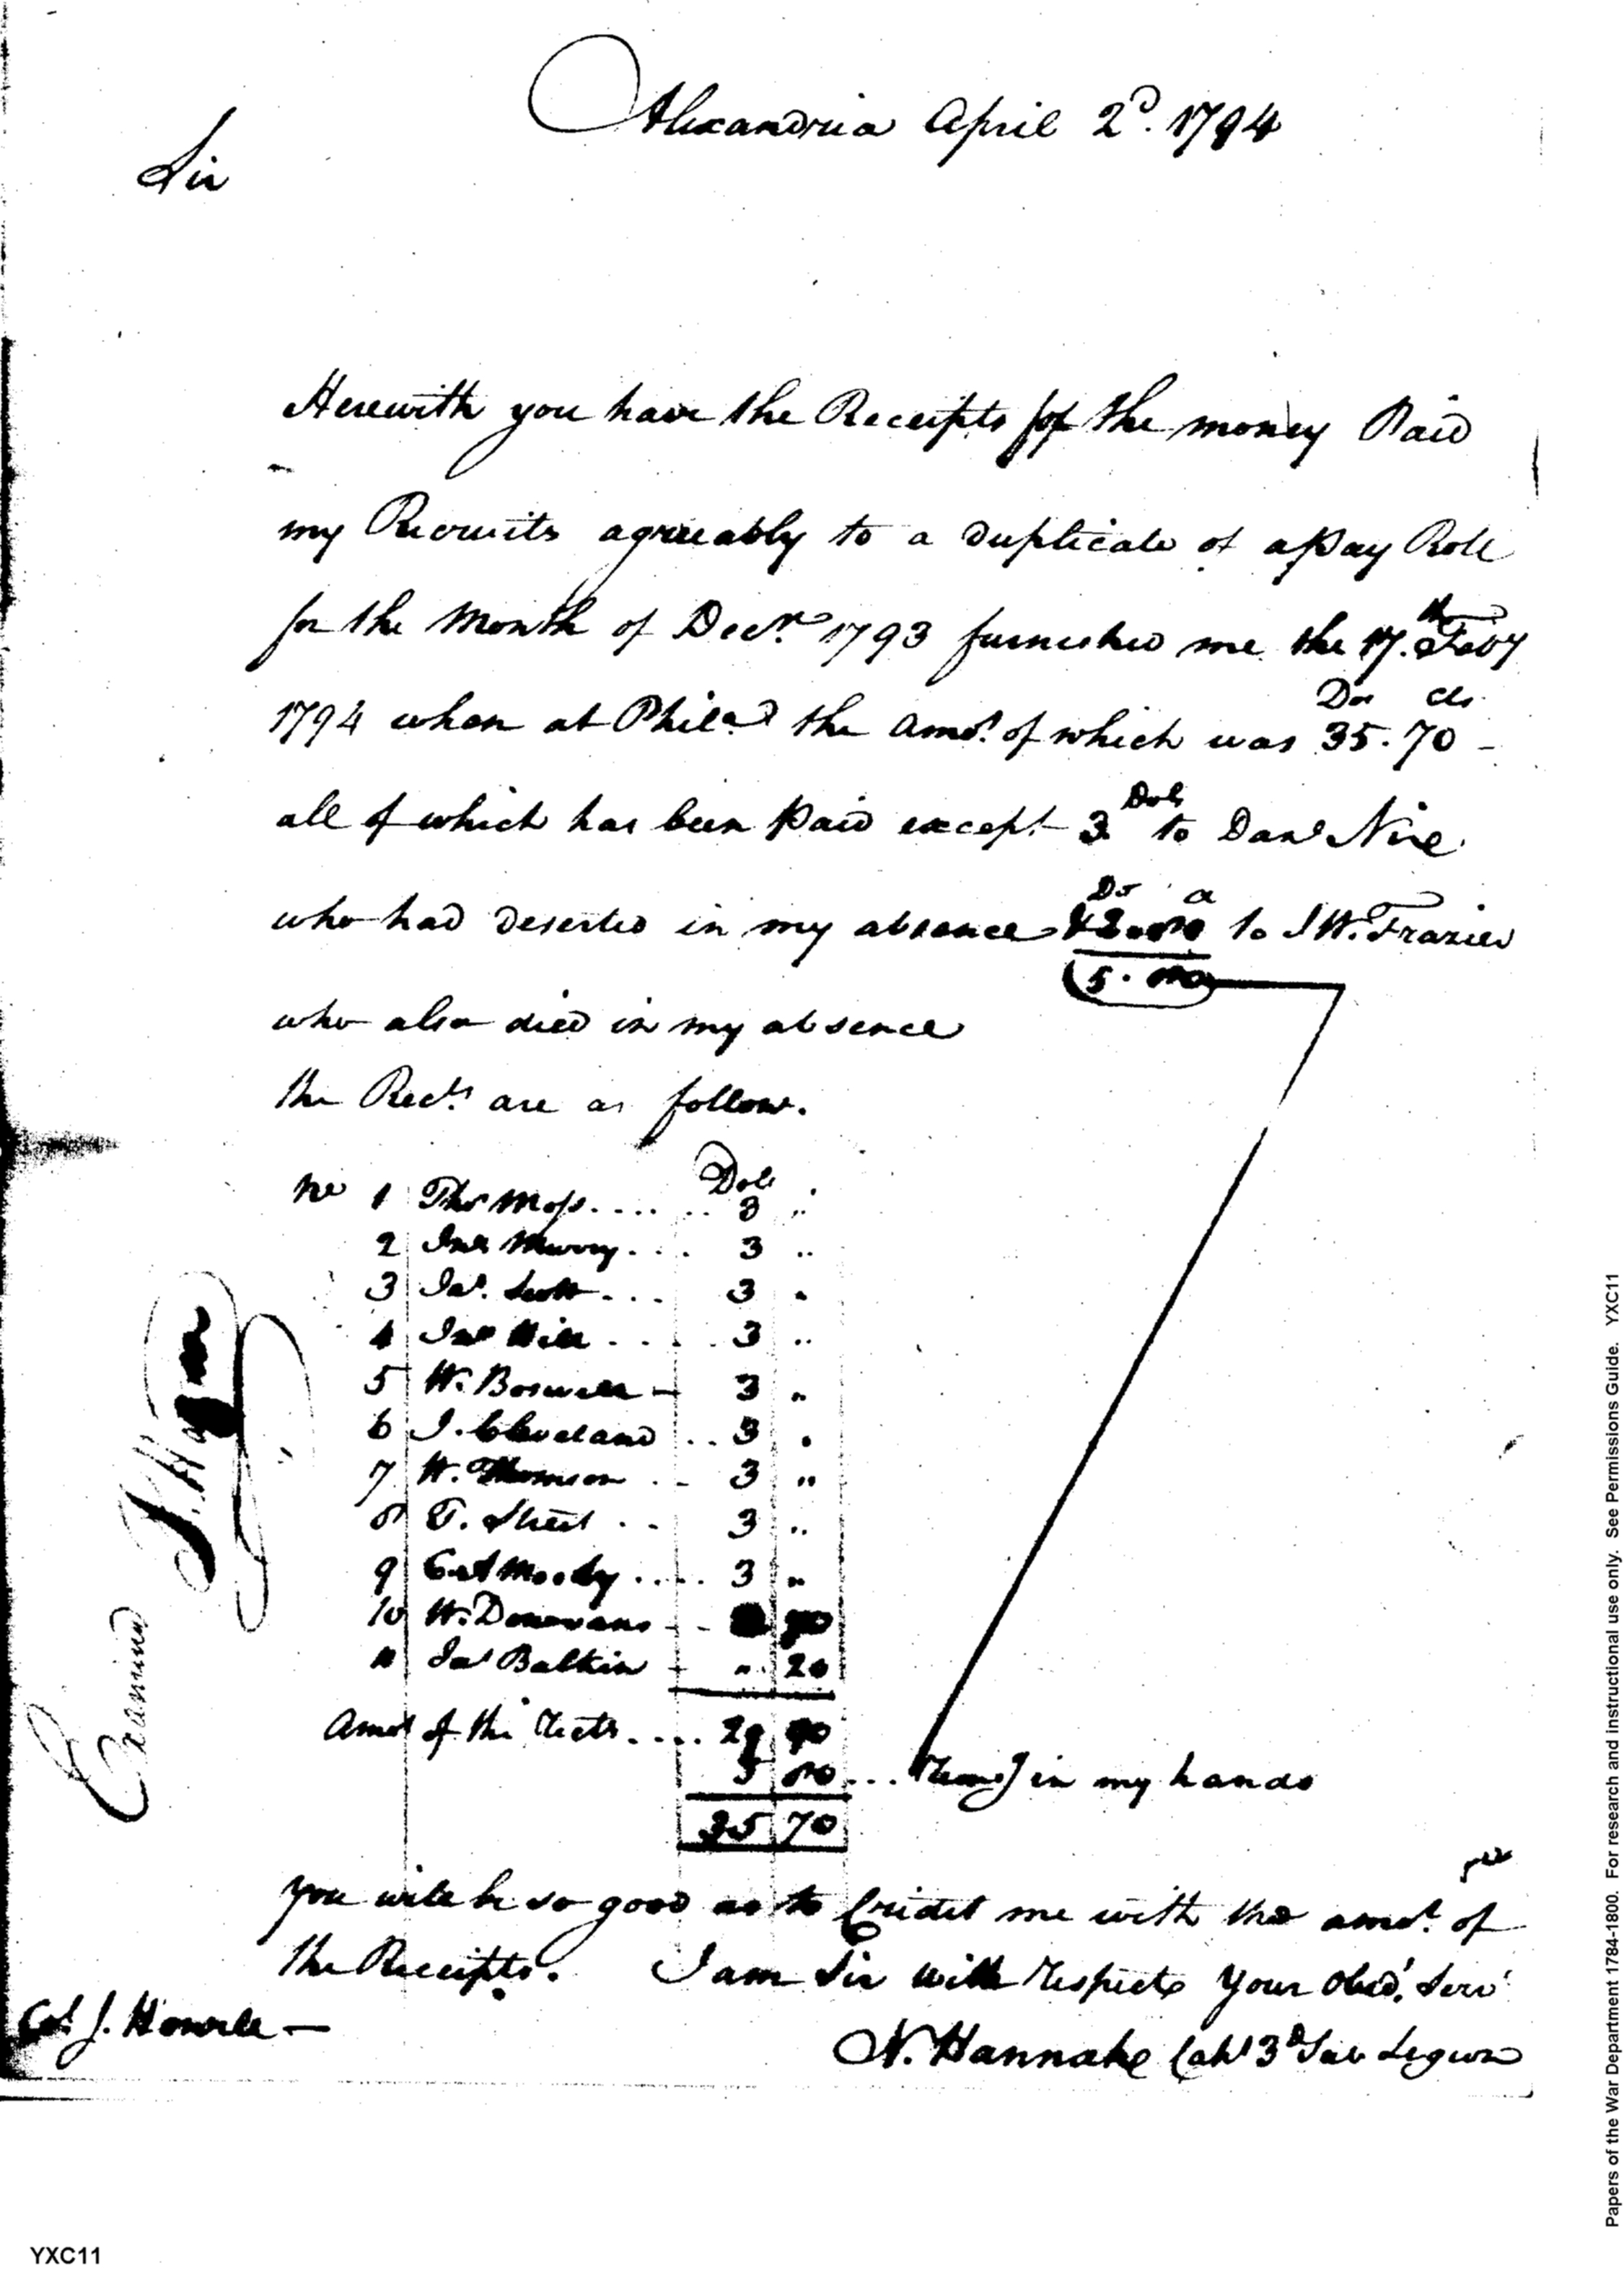 Alexandria April 2d. 1794
Sir
Herewith you have the Receipts for the money Paid
my Recruits agreeably to a duplicate of a Pay Roll
for the Month of Decr. 1793 furnished me the 17.th Feby
1794 when at Philad the amot. of which was 35.70 -
Dor Cts
all of which has been Paid except 3 Dols to Danl
who had deserted in my absence & to J W. Frazier
5.
who also died in my absence
the Rects. are as follow.
Dols
No 1 Thos Moss..... 3 "
2 Jno Murry.... 3 "
3 Jas. Scott.... 3 "
4 Jno Hill.... 3 "
5 W. Boswell - 3 "
6 J. Cleveland .. 3 "
7 W. Thomson .. 3 "
8 T. Street .. 3 "
9 Moody..... 3 "
10 W. Donovans - -
11 Jas Balkin - " 20
Amot of the rects....
5 ... in my hands
35 70
you will be so good as to Cridit me with the amot. of
the Receipts. I am Sir with respects your Obed. Serv
Col J. Howell -
N. Hannah Capt 3d Sub Legion
Examined
Papers of the War Department 1784-1800. For research and instructional use only. See Permissions Guide. YXC11
YXC11